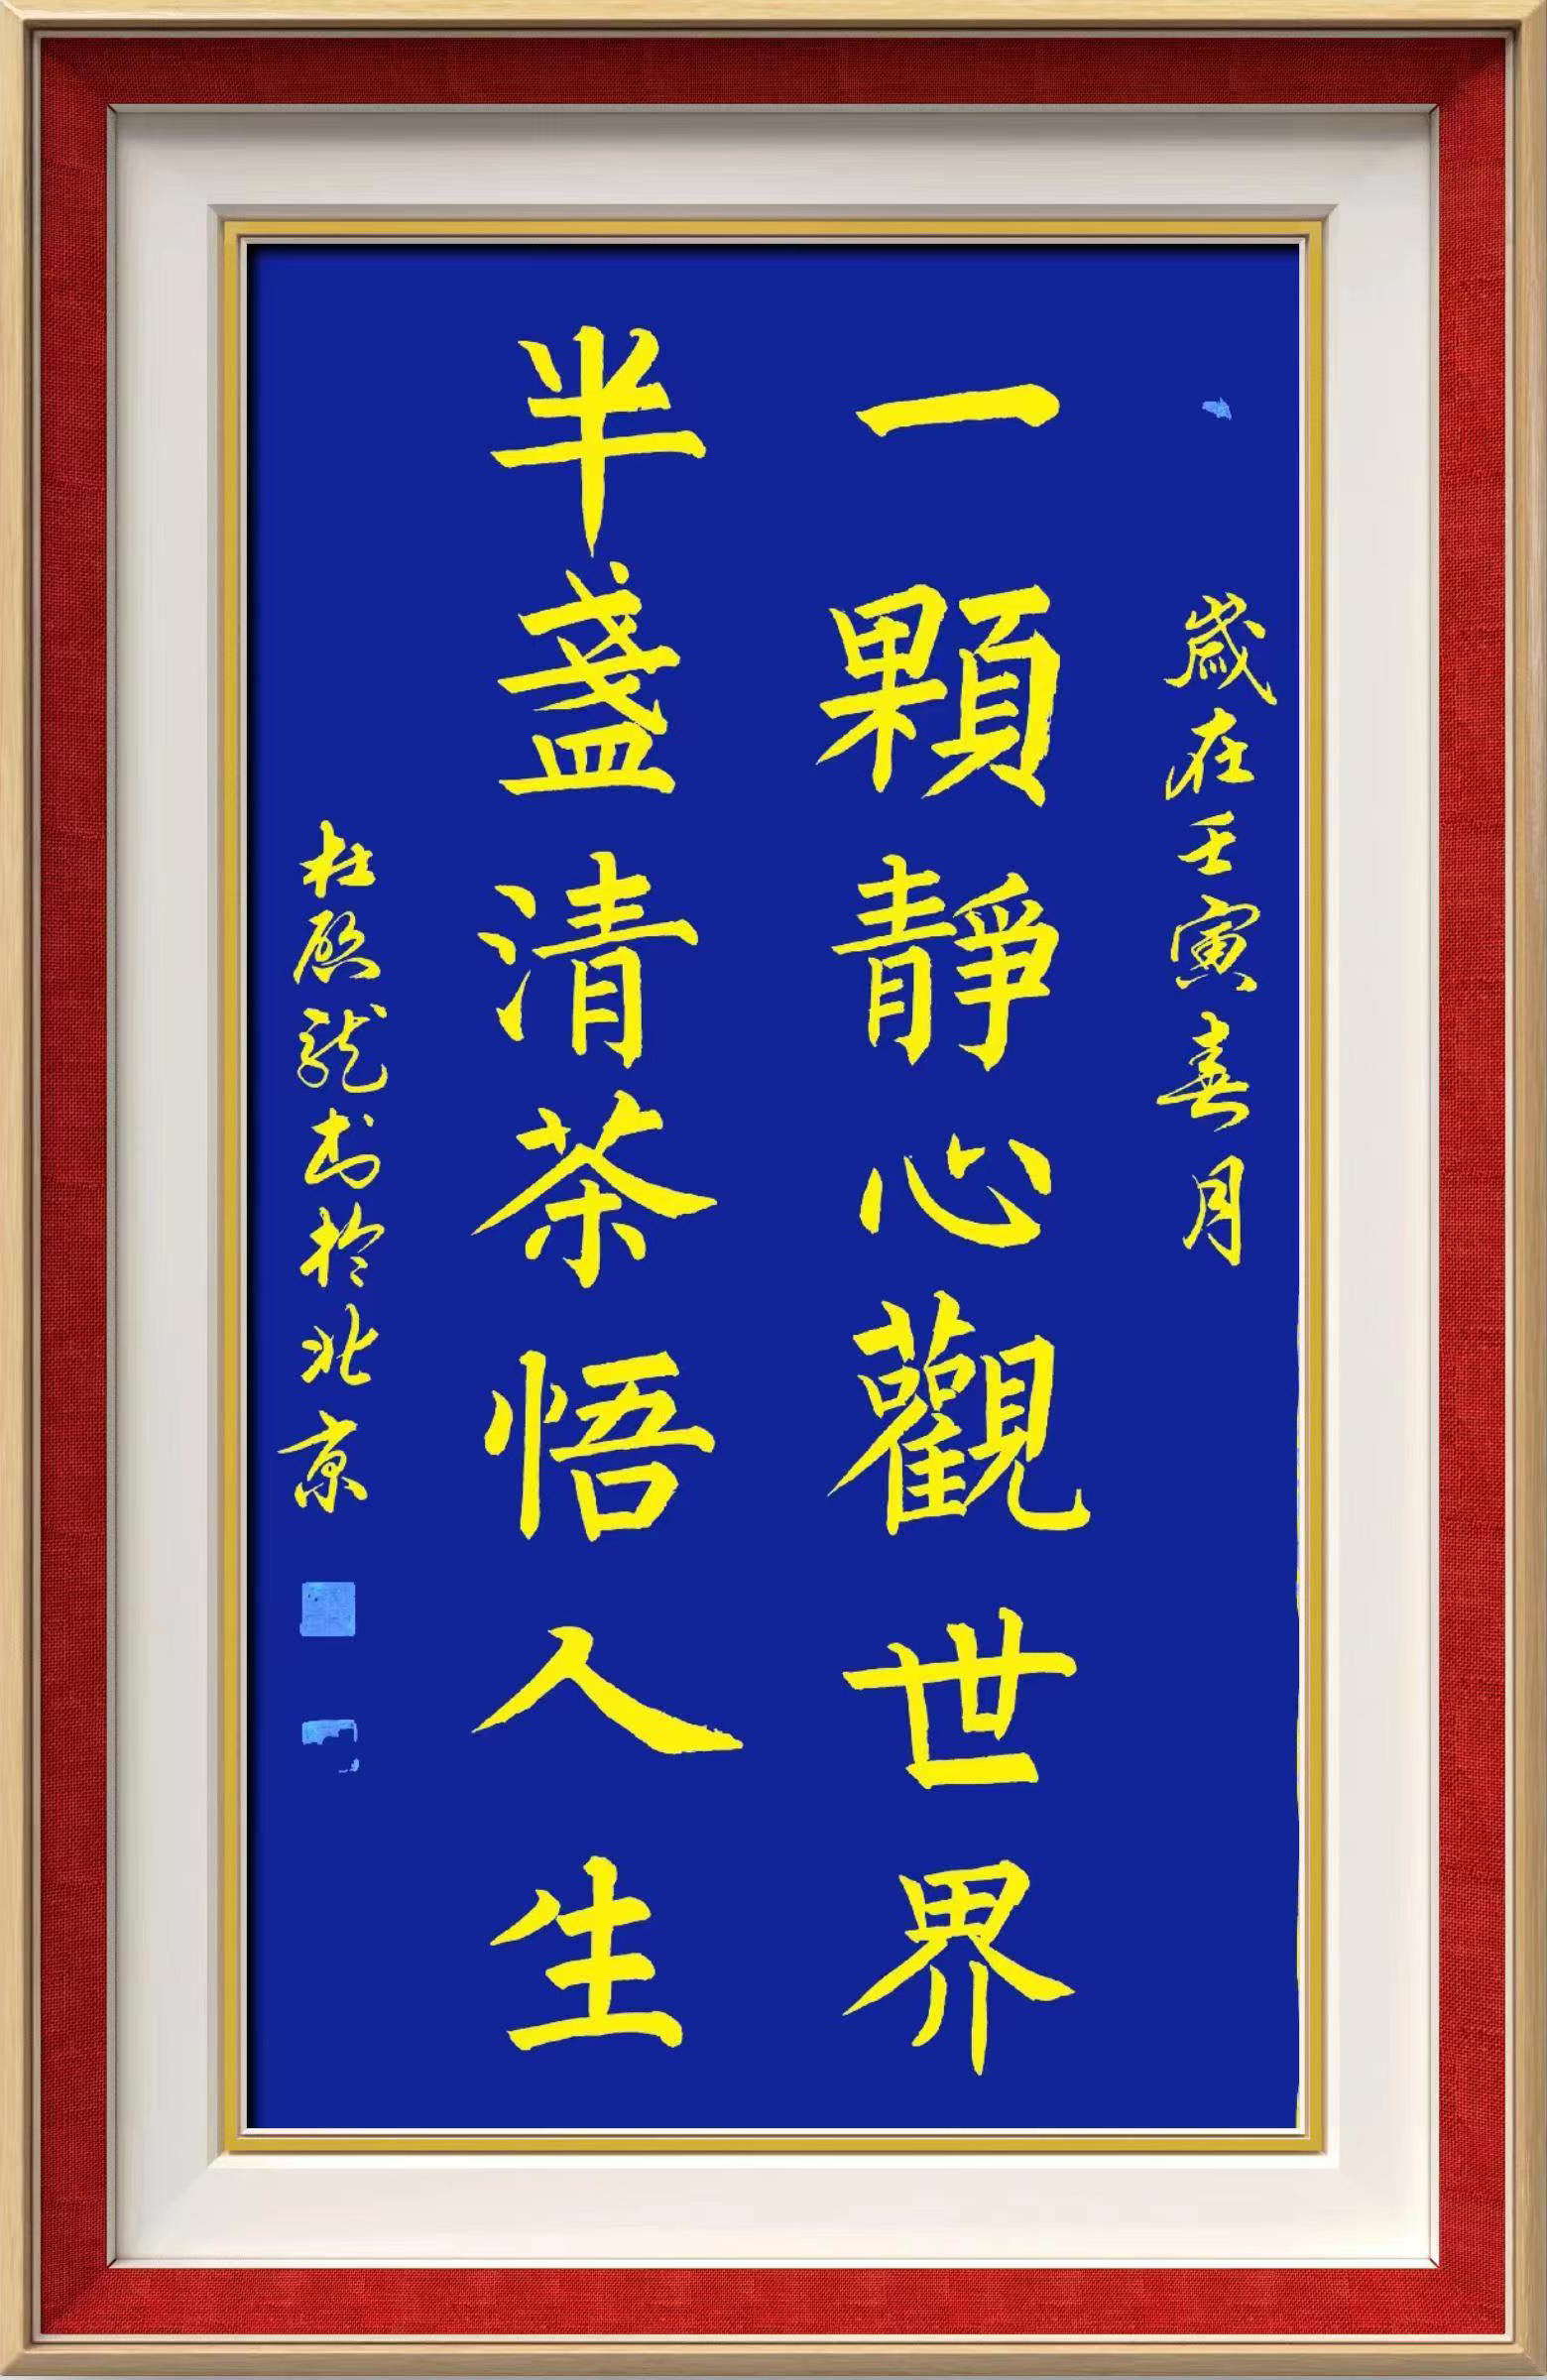 歲在壬寅喜月
一顆靜心觀世界
半盞清茶悟人生
杜啟龍書於北京